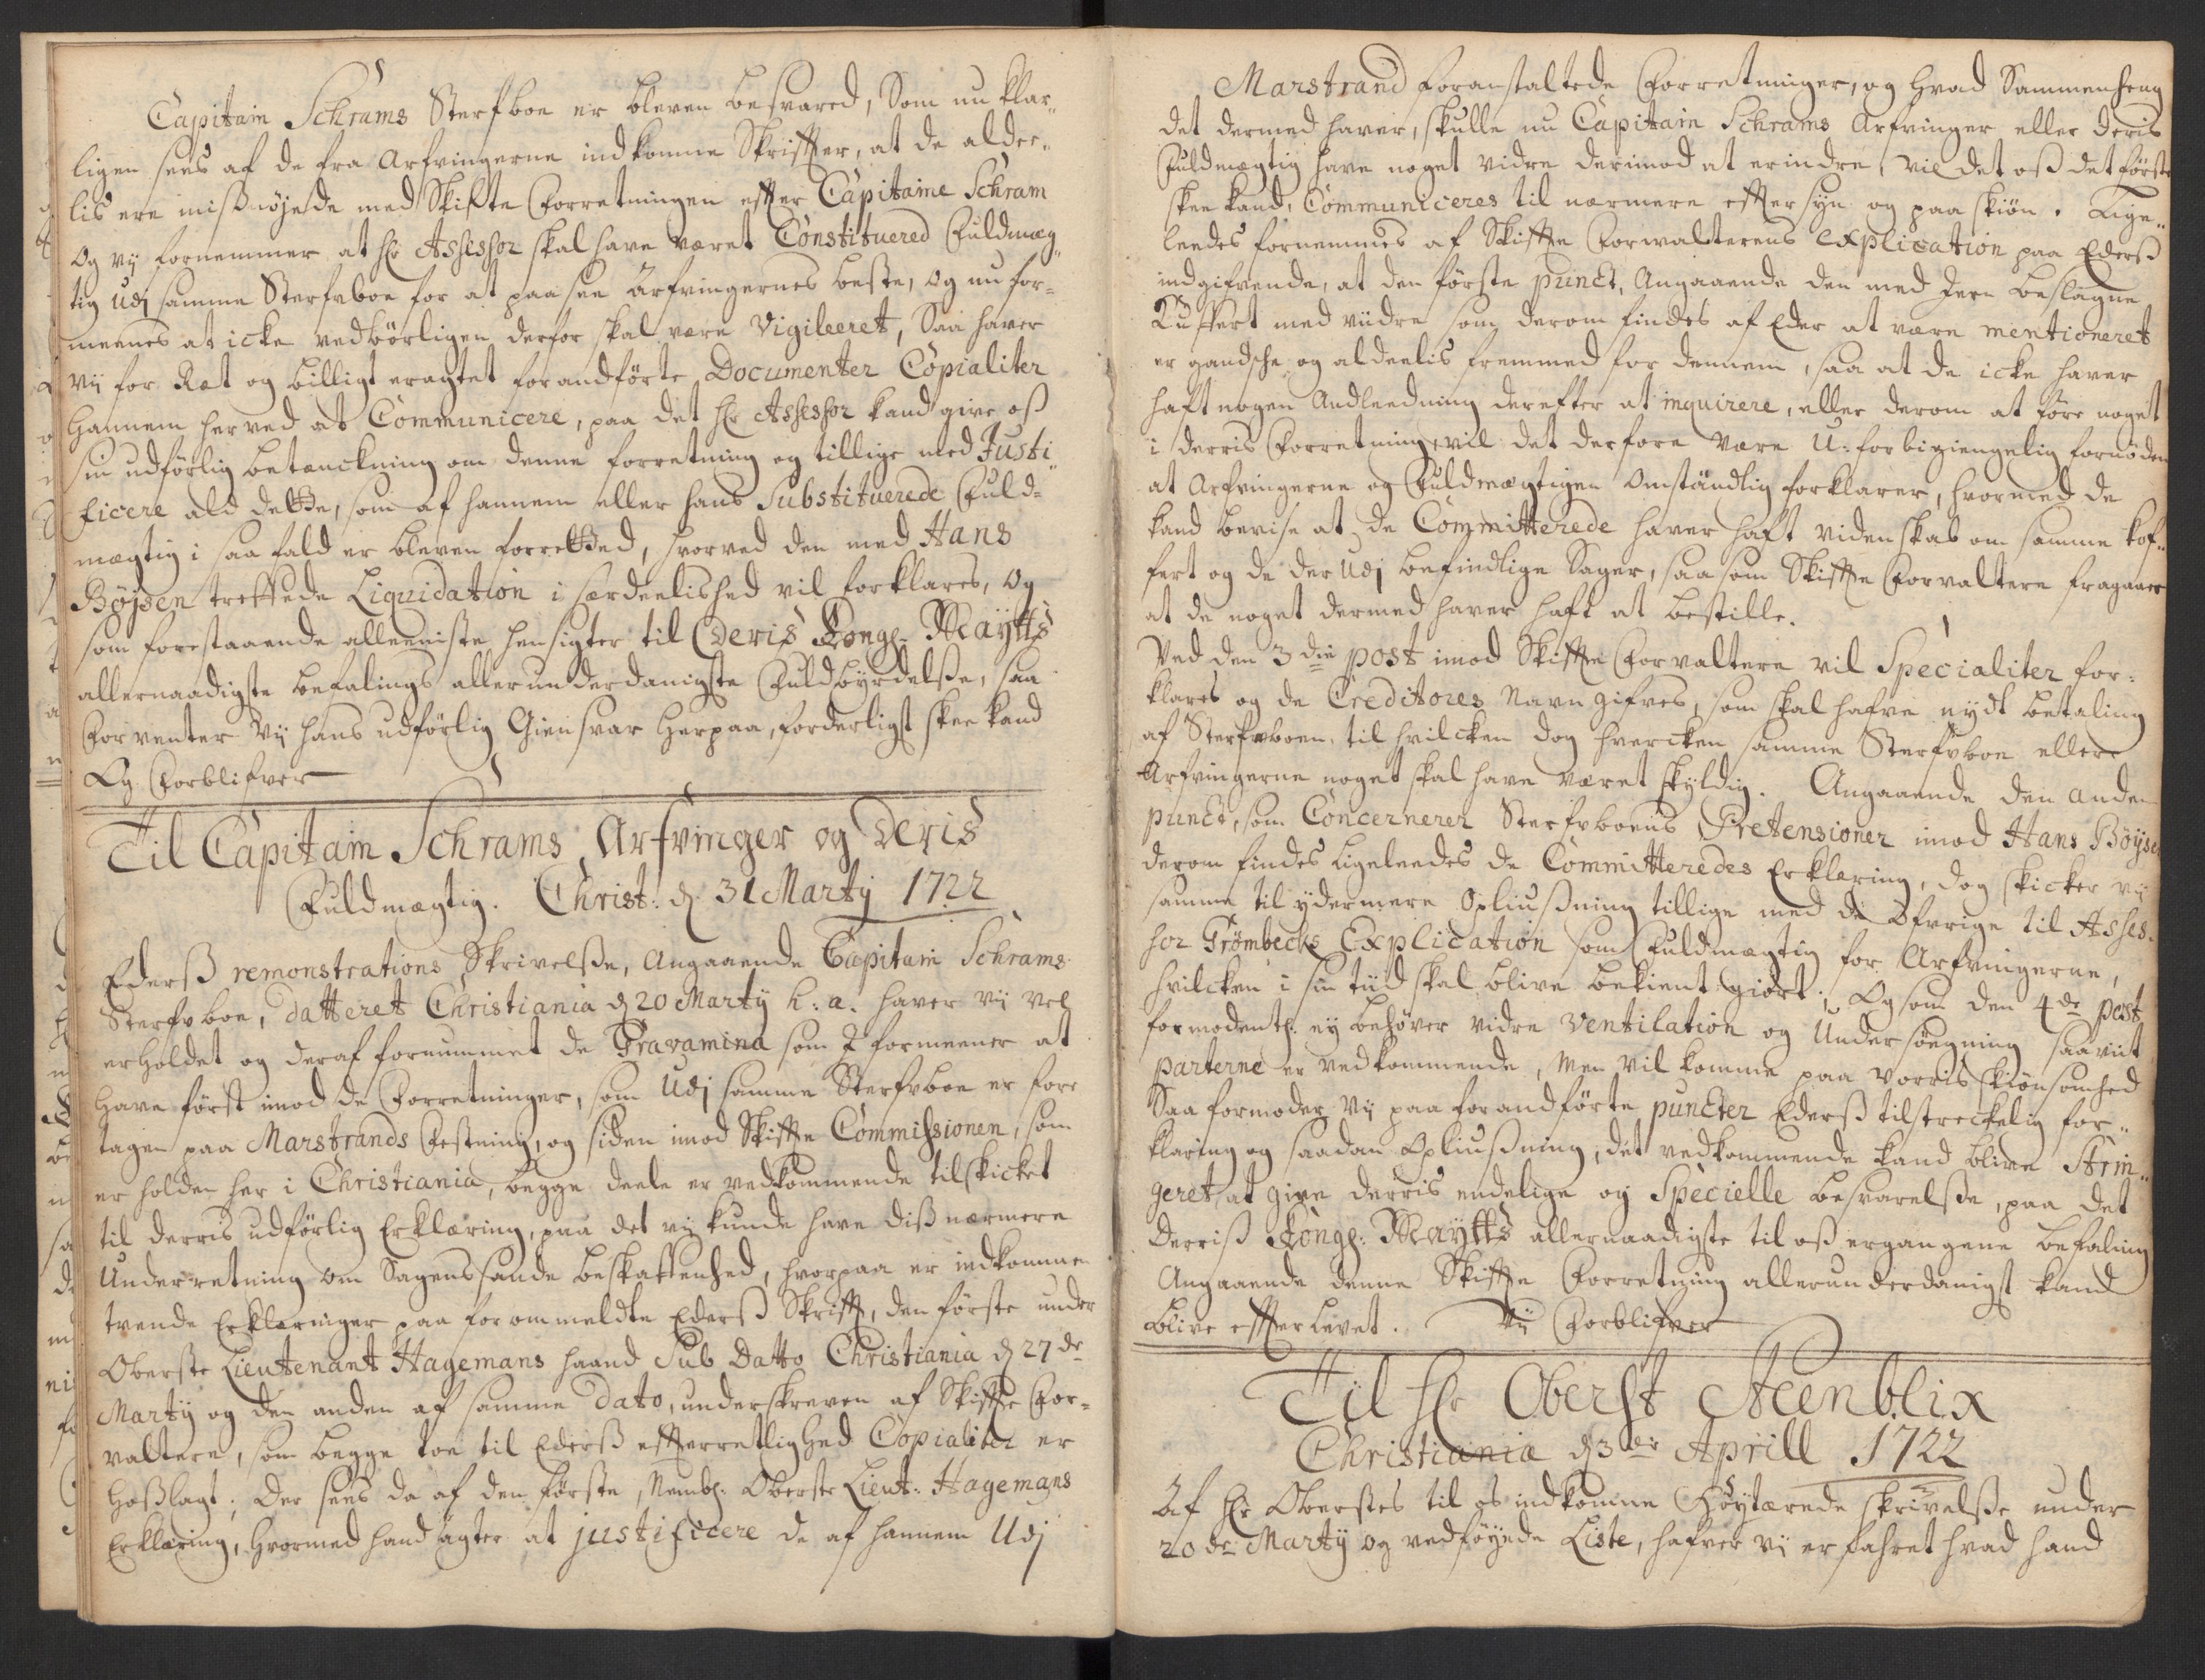 Capitain Schrams Sterfboe er bleven besvared, Som nu klar-
ligen sees af de fra Arfvingerne indkomne Skriffter, at de aldee-
lis ere misnøjede med Skifte Forretningen effter Capitaine Schram
Og vij fornemmer at Hr Assessor skal have været Constitueret Fuldmæg-
tig udj samme Sterfvboe for at paasee Arfvingernes beste, og nu for-
meenes at icke vedbørligen derfor skal være Vigileeret, Saa haver
vij for Ræt og billigt eragtet forandførte Documenter Copialiter
Hannem herved at Communicere, paa det Hr Assessor kand give oß
sin udførlig betænckning om denne forretning og tillige med Justi-
ficere ald dette, som af hannem eller hans Substituerede Fuld-
mægtig i saa fald er bleven forretted, hvorved den med Hans
Bøjsen treffede Liquidation i særdeelished vil forklares, Og
som forestaaende alleeniste hensigter til Deris Kongl. Maytts
allernaadigste befalings allerunderdanigste Fuldbyrdelße, saa
Forventer Vij hans udførlig Giensvar herpaa, forderligst skee kand
Og Forblifver
Til Capitain Schrams Arfvinger og Deris
Fuldmægtig. Christ: d. 31 Martij 1722
Ederß remonstrations Skrivelße, Angaaende Capitain Schrams
Sterfvboe, datteret Christiania d 20 Martij h: a. haver vij vel
erholdet og deraf fornummet de Gravamina som I formeener at
have først imod de Forretninger, som Udj samme Sterfvboe er fore
tagen paa Marstrands Festning, og siden imod Skiffte Commissionen, som
er holden her i Christiania, begge deele er vedkommende tilskicket
til derris udførlig Erklæring, paa det vij kunde have diß nærmere
Underretning om Sagens sande beskaffenhed, hvorpaa er indkommen
tvende Erklæringer paa forommeldte Ederß Skrifft, den første under
Oberste Lieutenant Hagemans haand Sub Datto Christiania d 27de
Martij og den anden af samme Dato, underskreven af Skiffte For-
valtere, som begge toe til Ederß effterretlighed Copialiter er
hoßlagt; Der sees da af den første, Nembl: Oberste Lieut: Hagemans
Erklæring, hvormed hand agter at justificere de af hannem Udj
Marstrand foranstaltede Forretninger, og hvad Sammenheng
det dermed haver, skulle nu Capitain Schrams Arfvinger eller deris
Fuldmægtig have noget vidre derimod at erindre, vil det oß det første
skee kand, Communiceres til nærmere efftersyn og paa skiøn. Lige-
leedes fornemmes af Skiffte Forvalterens explication paa Ederß
indgifvende, at den første punct, Angaaende den med Jern beslagne
Kuffert med viidre som derom findes af Eder at være mentioneret
er gandsche og aldeelis fremmed for dennem, saa at de icke haver
haft nogen Andleedning derefter at inquirere, eller derom at føre noget
i derris Forretning, vil det derfore være U-forbigiengelig fornøden
at Arfvingerne og Fuldmægtigen Omständlig forklarer, hvormed de
kand bevise at de Committerede haver haft videnskab om samme kof-
fert og de der Udj befindlige Sager, saasom Skiffte Forvaltere fragaaer
at de noget dermed haver haft at bestille.
Ved den 3die post imod Skiffte Forvaltere vil Specialiter for-
klares og de Creditores Navn gifves, som skal hafve nydt betaling
af Sterfvboen, til hvilcken dog hvercken samme Sterfvboe eller
Arfvingerne noget skal have været skyldig. Angaaende den anden
punct, som Concernerer Sterfvboens Pretensioner imod Hans Bøyse
derom findes ligeleedes de Committeredes Erklæring, dog skicker vij
samme til ydermere Opliußning tillige med de Øfvrige til Asses-
sor Grømbecks Explication som Fuldmægtig for Arfvingerne,
hvilcken i sin tiid skal blive bekient giørt; Og som den 4de post
formodentl: ej behøver vidre Ventilation og Undersøgning saaviit
parterne er vedkommende, Men vil komme paa Vorris skiønsomhed
Saa formoder Vij paa forandførte puncter Ederß tilstreckelig for-
klaring og saadan Opliußning, det vedkommende kand blive Strin-
geret, at give derris endelige og Specielle besvarelße, paa det
Derriß Kongl: Maytts allernaadigste til oß ergangene befaling
Angaaende denne Skiffte Forretning allerunderdanigst kand
blive effterlevet. Vij Forblifver
Til Hr Oberst Steenblix
Christiania d 3de Aprill 1722
Af Hr Oberstes til os indkomne Høytærede skrivelße under
20de Martij og vedføyede Liste, hafver vij erfahret hvad hand